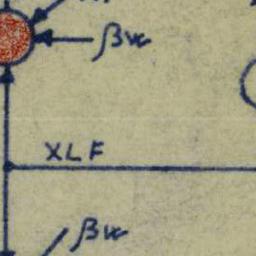 βw
XLF
βw